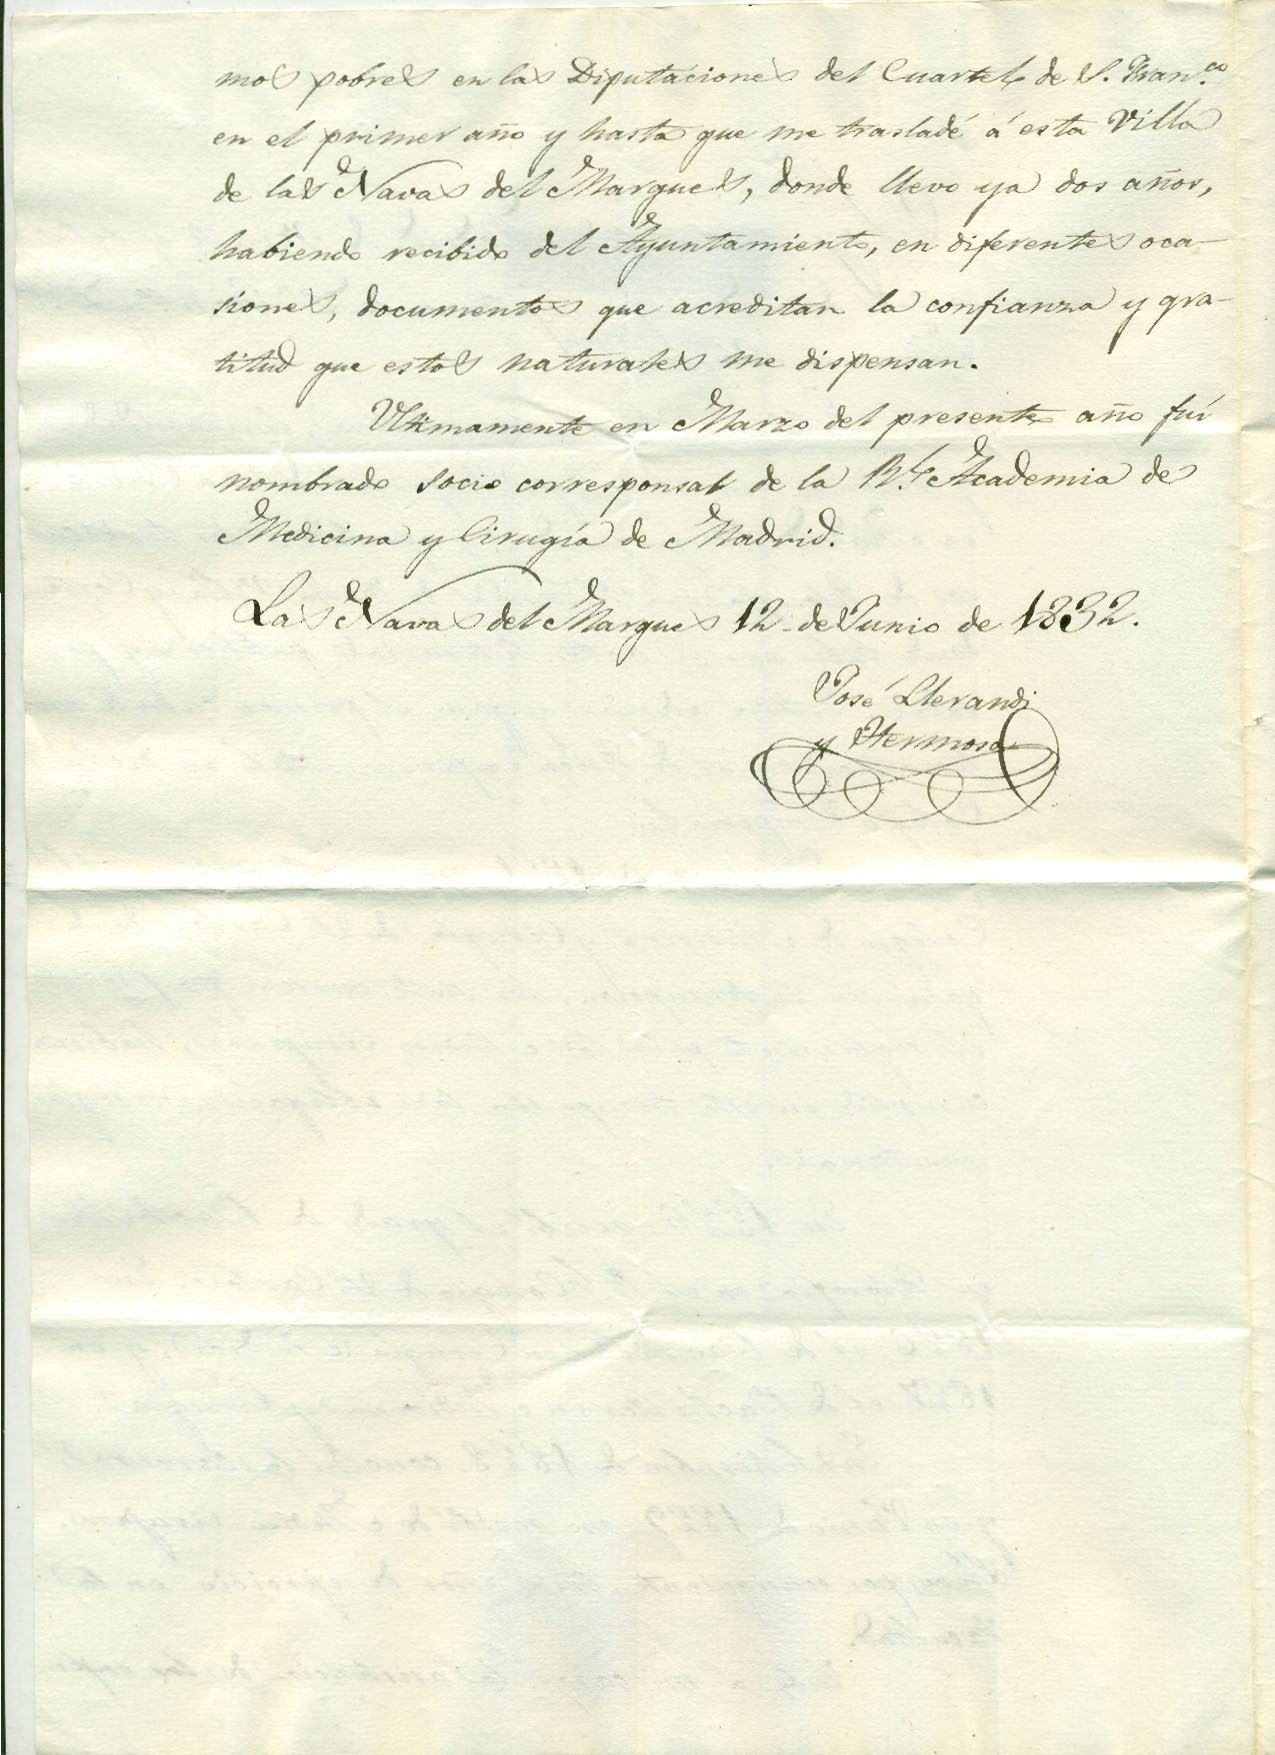 mos pobres en las Diputaciones del Cuartel de S. Fran.co
en el primer año y hasta que me trasladé á esta Villa
de las Navas del Marques, donde llevo ya dos años,
habiendo recibido del Ayuntamiento, en diferentes oca-
siones, documentos que acreditan la confianza y gra-
titud que estos naturales me dispensan.
Ultimamente en Marzo del presente año fuí
nombrado socio corresponsal de la R.l Academia de
Medicina y Cirugía de Madrid.
Las Navas del Marques 12 de Junio de 1832.
José Llerandi
y Hermosa